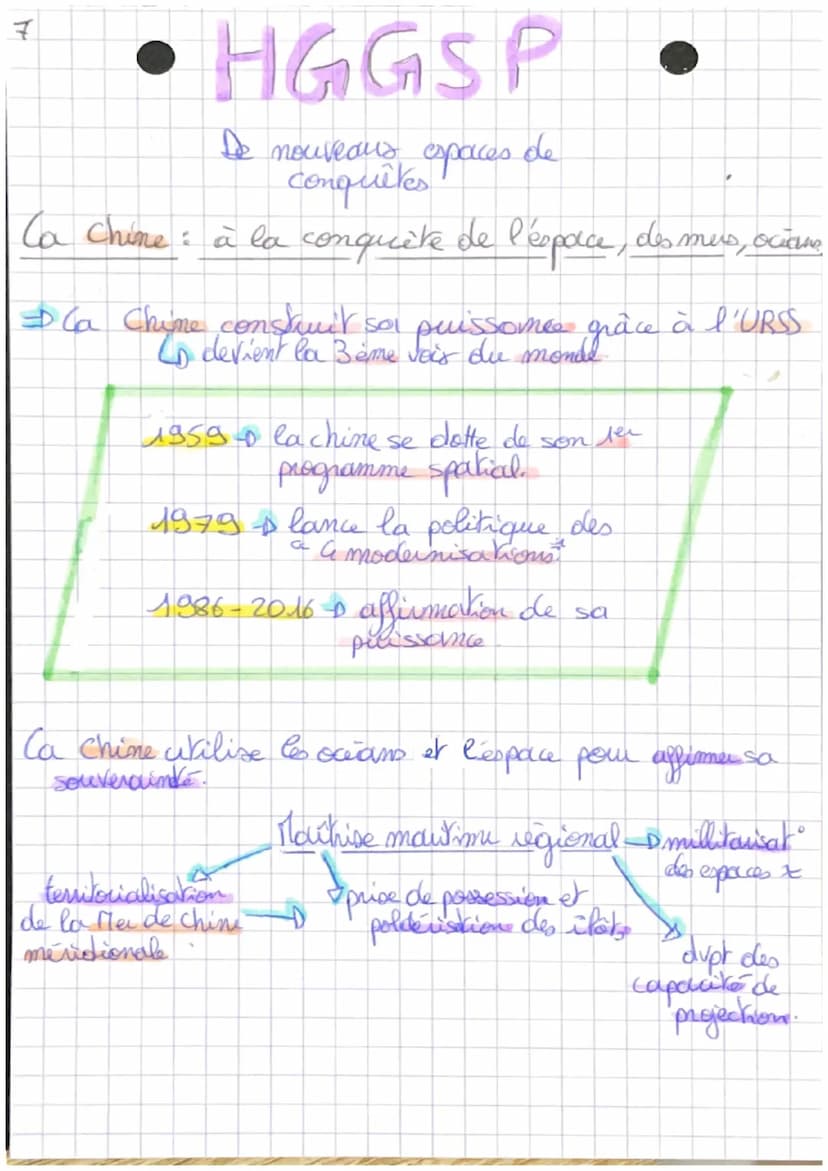 7
HGGSP
De nouveaux espaces de
conquêtes
La Chine : à la conquête de l'éspace, des mers, océans
⇒ La Chine construit sa puissance grâce à l'URSS
↳ devient la 3ème voix du monde
1959 → la chine se dotte de son 1er
programme spatial.
1979 → lance la politique des
"4 modernisations"
1986-2016 → affirmation de sa
puissance
La Chine utilise les océans et l'éspace pour affirmer sa
souverainté.
Maîtrise maritime régional → millitarisat°
des espaces
territorialisation
de la Mer de Chine →
méridionale
prise de possession et
poldérisation des îlôts
dvpt des
capacité de
projection.